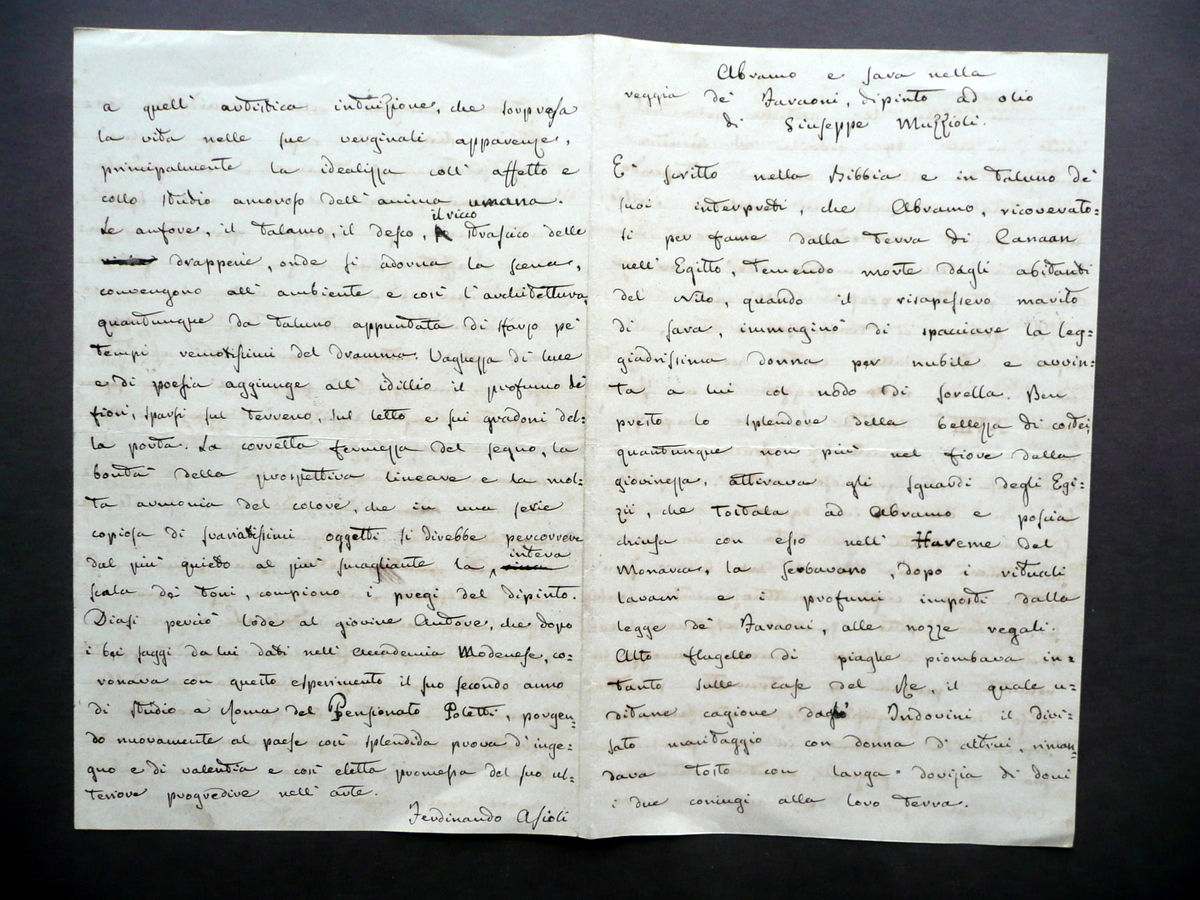 Abramo e Sara nella
reggia de' Faraoni, dipinto ad olio
di Giuseppe Muzzioli.
E' scritto nella Bibbia e in taluno de'
suoi interpreti, che Abramo, ricoverato=
si per fame dalla terra di Canaan
nell' Egitto, temendo morte dagli abitanti
del Nilo, quando il risapessero marito
di Sara, immaginò di spacciare la leg=
giadrissima donna per nubile e avvin=
ta a lui col nodo di sorella. Ben
presto lo splendore della bellezza di costei,
quantunque non più nel fiore della
giovinezza, attirava gli sguardi degli Egi=
zii, che toltala ad Abramo e poscia
chiusa con esso nell' Hareme del
Monarca, la serbavano, dopo i rituali
lavacri e i profumi imposti dalla
legge de' Faraoni, alle nozze regali.
Alto flagello di piaghe piombava in=
tanto sulle case del Re, il quale u=
ditane cagione dagl' Indovini il divi=
sato maritaggio con donna d' altrui, riman=
dava tosto con larga dovizia di doni
i due coniugi alla loro terra.
a quell' artistica intuizione, che sorpresa
la vita nelle sue verginali apparenze,
principalmente la idealizza coll' affetto e
collo studio amoroso dell' anima umana.
Le anfore, il talamo, il desco, il ricco strascico delle
drapperie, onde si adorna la scena,
convengono all' ambiente e così l' architettura,
quantunque da taluno appuntata di sfarzo pe'
tempi remotissimi del dramma. Vaghezza di luce
e di poesia aggiunge all' idillio il profumo de'
fiori, sparsi sul terreno, sul letto e sui gradoni del=
la porta. La corretta fermezza del segno, la
bontà della prospettiva lineare e la mol=
ta armonia del colore, che in una serie
copiosa di svariatissimi oggetti si direbbe percorrere
dal più quieto al più smagliante la intera
scala dei toni, compiono i pregi del dipinto.
Diasi perciò lode al giovine Autore, che dopo
i bei saggi da lui dati nell' Accademia Modenese, co=
ronava con questo esperimento il suo secondo anno
di studio a Roma del Pensionato Poletti, porgen=
do nuovamente al paese così splendida prova d' inge=
gno e di valentia e così eletta promessa del suo ul=
teriore progredire nell' arte.
Ferdinando Asioli